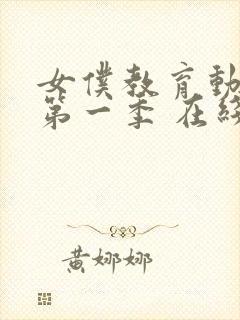 女僕教育動
第一季 在線
黃娜娜